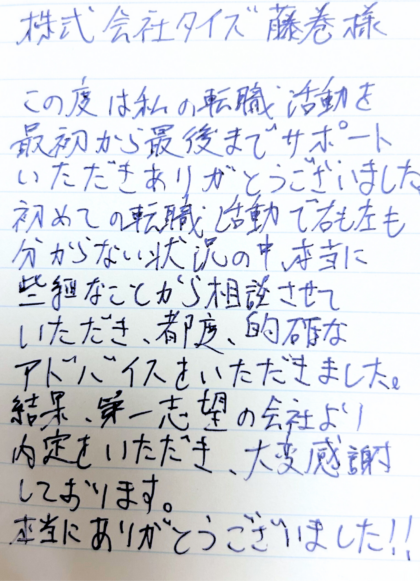 株式会社タイズ 藤巻様
この度は私の転職活動を
最初から最後までサポート
いただきありがとうございました。
初めての転職活動で右も左も
分からない状況の中、本当に
些細なことから相談させて
いただき、都度、的確な
アドバイスをいただきました。
結果、第一志望の会社より
内定をいただき、大変感謝
しております。
本当にありがとうございました!!